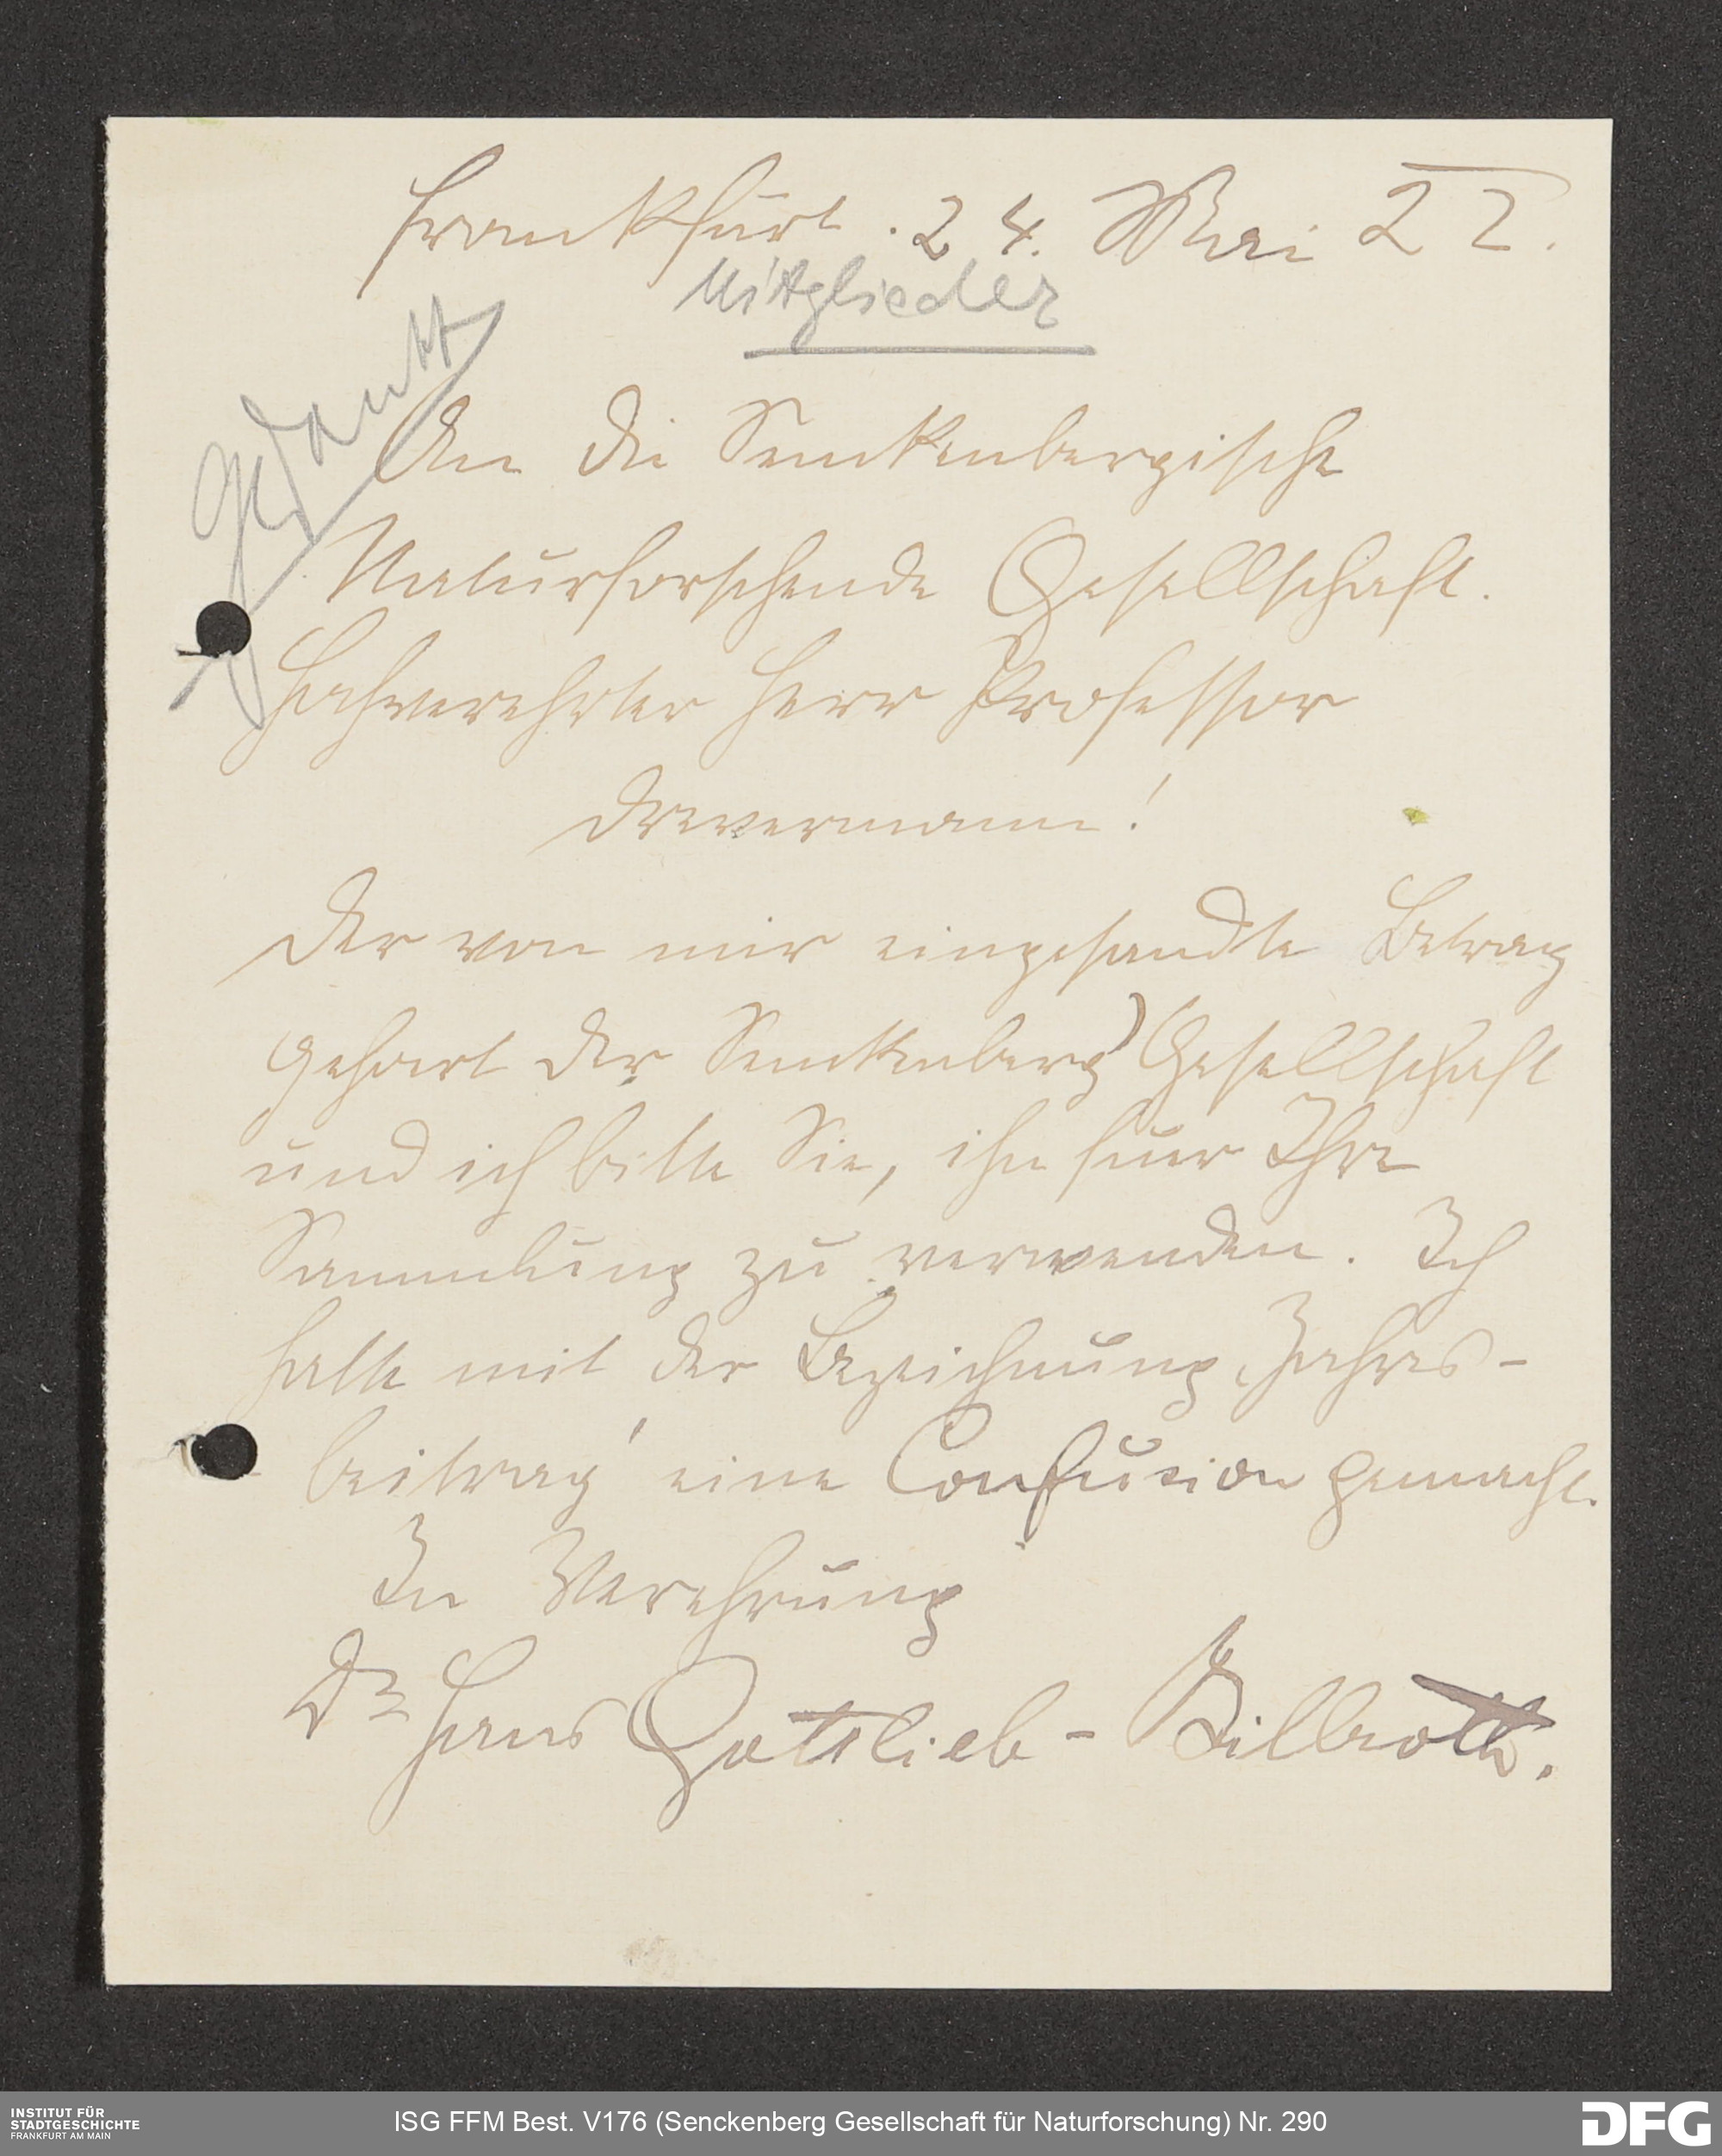 Frankfurt. 24. Mai 22.
Mitglieder
gedankt
An die Senckenbergische
Naturforschende Gesellschaft.
Hochverehrter Herr Professor
Drevermann!
Der von mir eingesandte Betrag
gehoert der Senckenberg) Gesellschaft
und ich bitte Sie, ihn fuer Ihre
Sammlung zu verwenden. Ich
hatte mit der Bezeichnung, Jahres-
beitrag' eine Confusion gemacht.
In Verehrung
Dr Hans Gottlieb-Billroth.
INSTITUT FÜR
STADTGESCHICHTE
FRANKFURT AM MAIN
ISG FFM Best. V176 (Senckenberg Gesellschaft für Naturforschung) Nr. 290
DFG